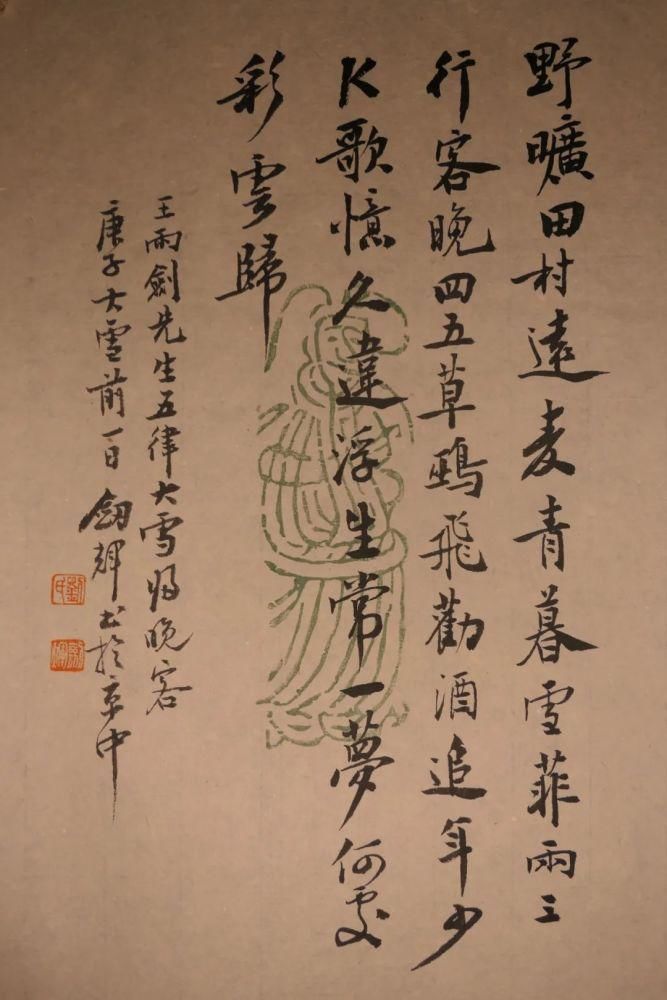 野曠田村遠麦青暮雪菲兩三
行客晚四五草鵶飛勸酒追年少
K歌憶久違浮生常一夢何處
彩雲歸
王雨劍先生五律大雪收晚客
庚子大雪前一日劒輝书於京中